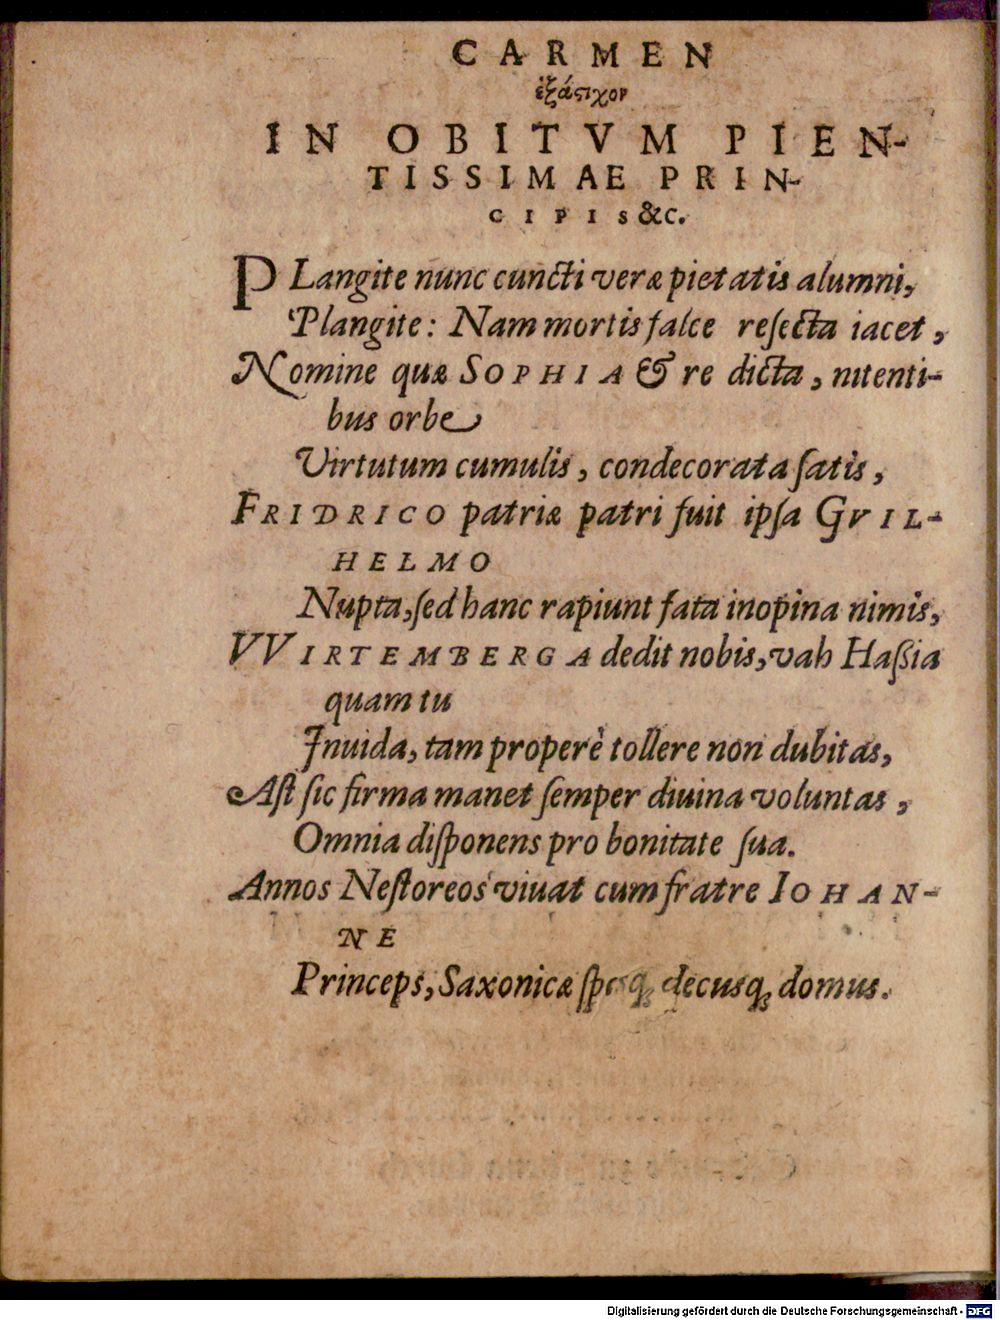 CARMEN
ἑξάστιχον
IN OBITVM PIEN-
TISSIMAE PRIN-
CIPIS &c.
PLangite nunc cuncti veræ pietatis alumni,
Plangite: Nam mortis falce reſecta iacet,
Nomine quæ SOPHIA & re dicta, nitenti-
bus orbe
Virtutum cumulis, condecorata ſatis,
FRIDRICO patriæ patri fuit ipſa GVIL-
HELMO
Nupta, ſed hanc rapiunt fata inopina nimis,
VVIRTEMBERGA dedit nobis, vah Haßia
quam tu
Jnuida, tam properè tollere non dubitas,
Aſt ſic firma manet ſemper diuina voluntas,
Omnia diſponens pro bonitate ſua.
Annos Neſtoreos viuat cum fratre IOHAN-
NE
Princeps, Saxonicæ ſpesq; decusq; domus.
Digitalisierung gefördert durch die Deutsche Forschungsgemeinschaft - DFG